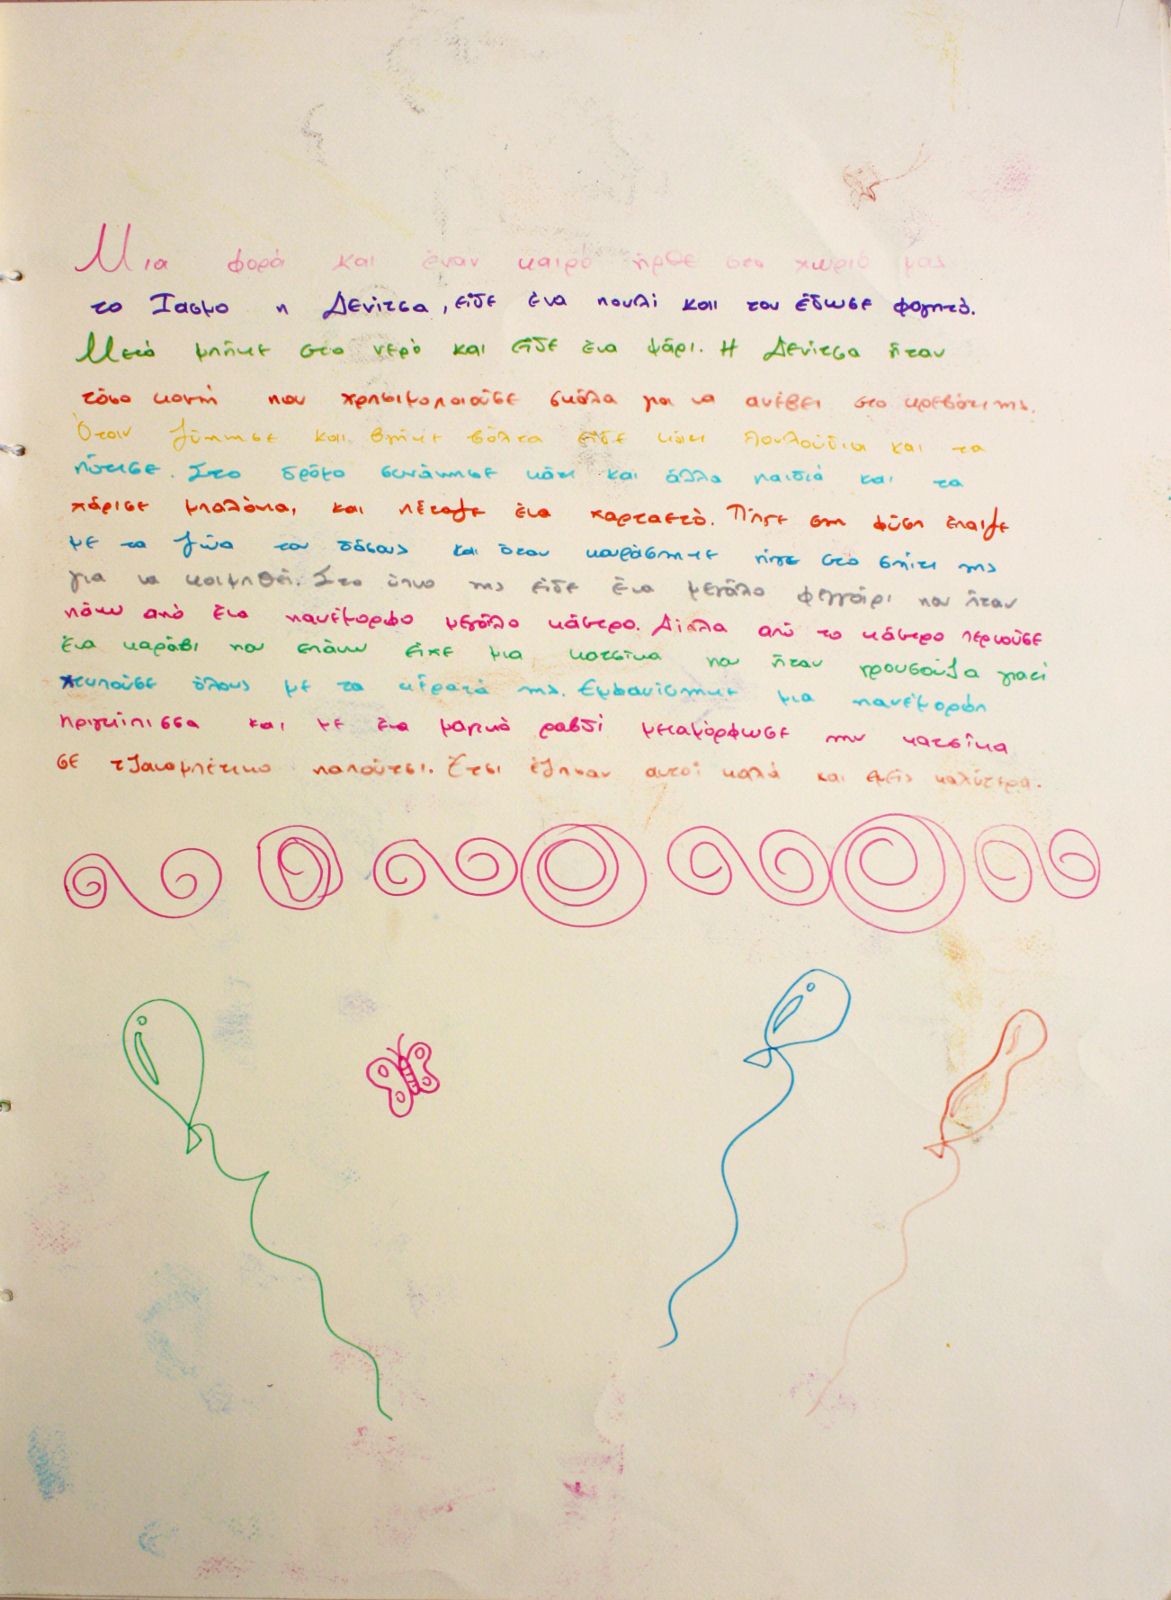 Μια φορά και έναν καιρό ήρθε στο χωριό μας
το Ίασμο η Δενίτσα, είδε ένα πουλί και του έδωσε φαγητό.
Μετά μπήκε στο νερό και είδε ένα ψάρι. Η Δενίτσα ήταν
τόσο κοντή που χρησιμοποιούσε σκάλα για να ανέβει στο κρεβάτι της.
Όταν ξύπνησε και βγήκε βόλτα είδε κάτι λουλούδια και τα
πότισε. Στο δρόμο συνάντησε κάτι και άλλα παιδιά και τα
χάρισε μπαλόνια, και πέταξε ένα χαρταετό. Πήγε στη φύση έπαιξε
με τα ζώα του δάσους και όταν κουράστηκε πήγε στο σπίτι της
για να κοιμηθεί. Στο ύπνο της είδε ένα μεγάλο φεγγάρι που ήταν
πάνω από ένα πανέμορφο μεγάλο κάστρο. Δίπλα από το κάστρο περνούσε
ένα καράβι που επάνω είχε μια κατσίκα που ήταν γρουσούζα γιατί
χτυπούσε όλους με τα κέρατά της. Εμφανίστηκε μια πανέμορφη
πριγκίπισσα και με ένα μαγικό ραβδί μεταμόρφωσε την κατσίκα
σε τζακομπέτικο παπούτσι. Έτσι έζησαν αυτοί καλά και εμείς καλύτερα.